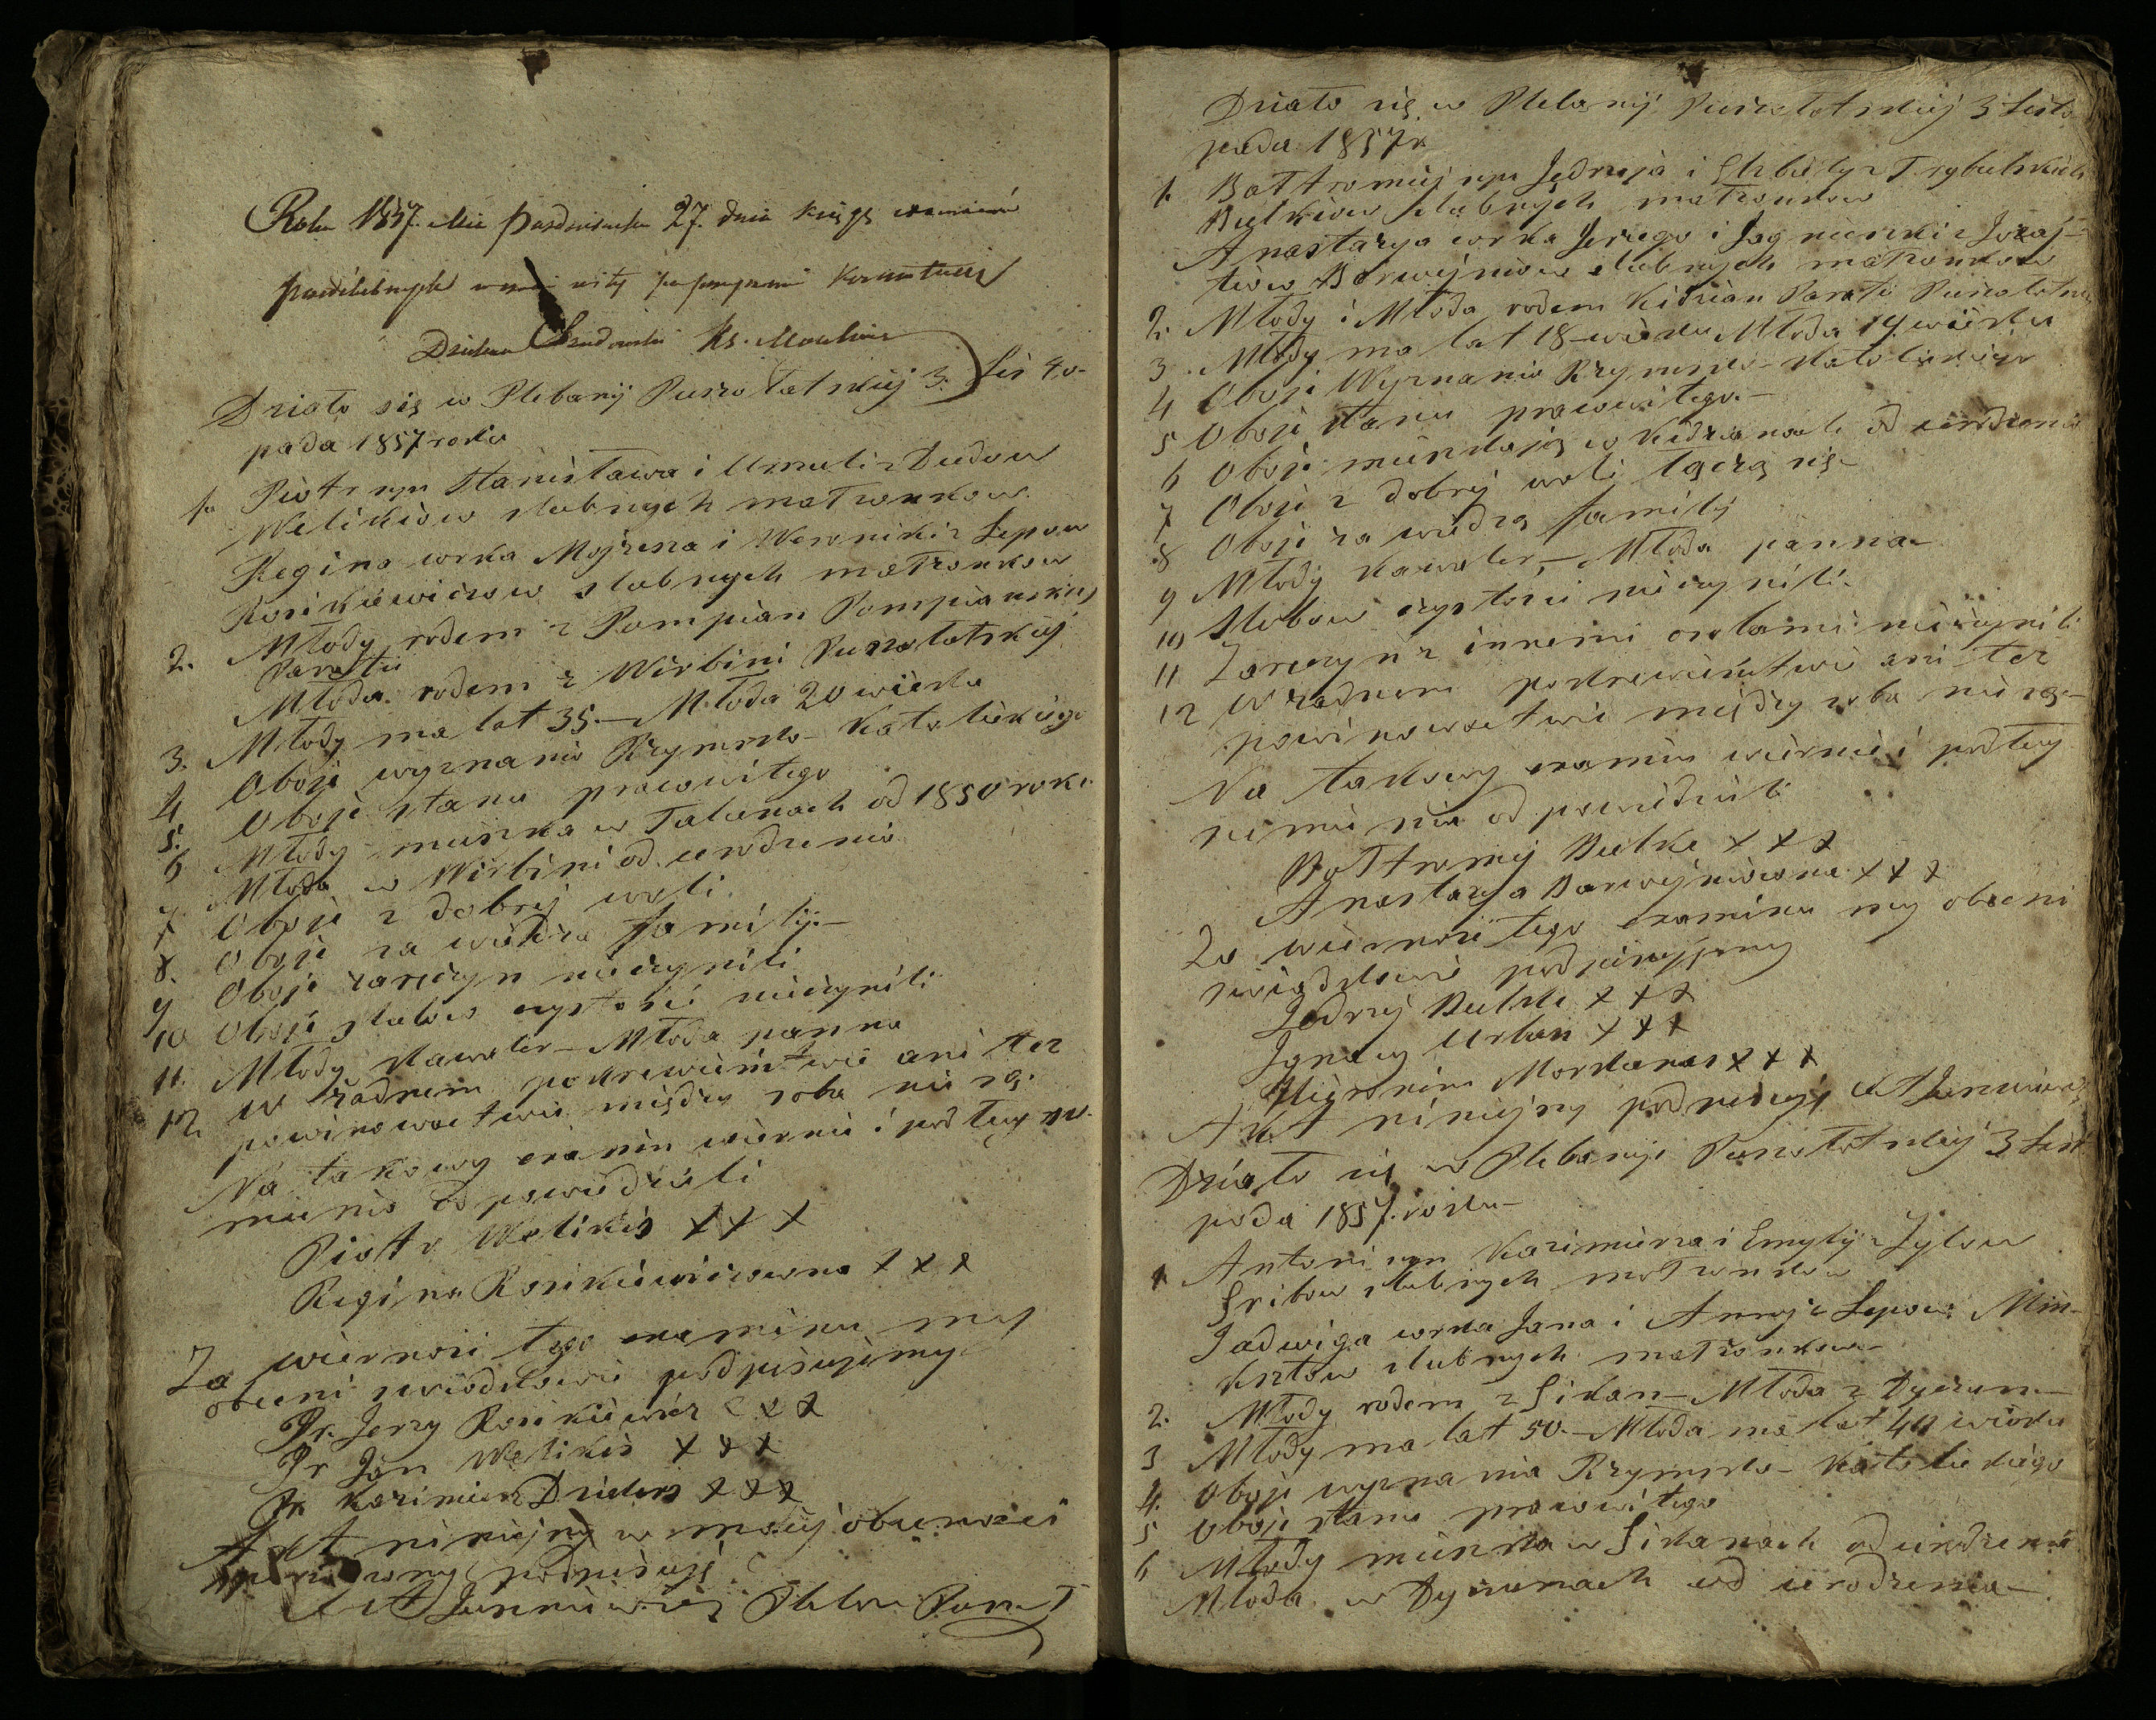 Roku 1857. Mca Pazdziernika 27. dnia księgę examinów
przedślubnych w czasie wizyty
Dziekan Ks.
Działo się w Plebanij Puszołatskiej 3. Lis to-
pada 1857 roku
1. Piotr syn Stanisława i z Dudow
Welikisow slubnych małżonkow
Regina corka Mojzesza i Weroniki z Lepow
Rosikiewiczow slubnych małżonkow
2. Młody rodem z Pompian Pompianskiej
Parafii
Młoda rodem z Wirbini Puszołatskiej
3. Młody ma lat 35.— Młoda 20 wieku
4 Oboje wyznania Rzymsko-Katolickiego
5. Oboje stanu prawowitego
6 Młody mieszka w Talunach od 1850 roku
Młoda w Wirbini od urodzenia
7 Oboje z dobrej woli
8. Oboje za wiedzą familij.—
9 Oboje zaręczyn nieczynili
10 Oboje slubow czystości nieczynili
11. Młody Kawaler — Młoda panna
12 W żadnem pokrewieństwie ani tez
powinowactwie między soba nie są.
Na takowy examin wiernie i podług su-
mienia odpowiedzieli
Piotr Welikis X X X
Regina Rosikiewiczowna X X X
Za wiernosc tego examinu my
obecni swiadkowie podpisujemy
Pr. Jerzy Rosikiewicz X X X
Pr Jan Welikis X X X
Pr Kazimierz X X X
Akt niniejszy w mojej obecnosci
podpisuję
Pleban
Działo się w Plebanij Puszołotskiej 3 Listo
pada 1857 r
1. Bałtromiej syn Jędrzeja i Elzbiety z Trybulskich
Butkisow slubnych małzonkow
Anastazya corka Jerzego i Jagnieszki z
Darwojnisow slubnych małżonkow
2. Młody i Młoda rodem Kidzian Parafii
3. Młody ma lat 18 wieku Młoda 19 wieku
4 Oboje Wyznania Rzymsko-Katolickiego
5 Oboje stanu prawowitego.—
6 Oboje mieszkają w Kidzianach od urodzenia
7 Oboje z dobrej woli łączą się—
8 Oboje za wiedzą familij
9 Młody kawaler,— Młoda panna—
10 Slubow czystości nieczynili—
11 Zaręczyn z innemi osobami nieczynili
12 W żadnem pokrewieństwie ani tez
powinowactwie między soba nie są—
Na takowy examin wiernie i podług
sumienia odpowiedzieli
Bałtromiej Butkis X X X
Anastazya Darwojnisowna X X X
Za wiernosc tego examinu my obecni
swiadkowie podpisujemy
Jędrzej Butkis X X X
Ignacy Urban X X X
Hieronim X X X
Akt niniejszy podpisuję
Działo się w Plebanij Puszołotskiej 3 Listo
pada 1857. roku—
1 Antoni syn Kazimierza i Emylij z
slubnych małżonkow
Jadwiga corka Jana i Anny z Lepow Min-
slubnych małżonkow—
2. Młody rodem z — Młoda z
3 Młody ma lat 50.— Młoda ma lat 40 wieku
4. Oboje wyznania Rzymsko-Katolickiego
5 Oboje stanu prawowitego
6 Młody mieszka w od urodzenia
Młoda w od urodzenia—